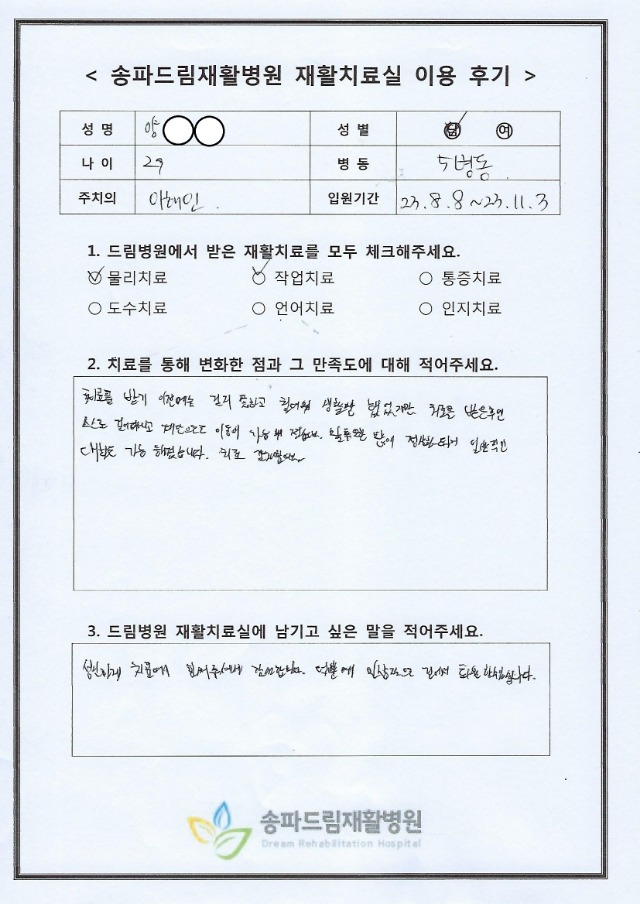 < 송파드림재활병원 재활치료실 이용 후기 >
성 명 양 성 별 남 여
나 이 29 병 동 5병동
주치의 입원기간 23.8.8 ~ 23.11.3
1. 드림병원에서 받은 재활치료를 모두 체크해주세요.
물리치료 작업치료 통증치료
도수치료 언어치료 인지치료
2. 치료를 통해 변화한 점과 그 만족도에 대해 적어주세요.
치료를 받기 이전에는 걷지 못하고 휠체어 생활만 했었지만 치료를 받은후엔
스스로 이동이 가능해 졌습니다. 말투또한 많이 정상화되어 일반적인
대화도 가능 해졌습니다. 치료 감사합니다.
3. 드림병원 재활치료실에 남기고 싶은 말을 적어주세요.
성실하게 치료에 감사합니다. 덕분에 정상적으로 걸어서 퇴원합니다.
송파드림재활병원
Dream Rehabilitation Hospital